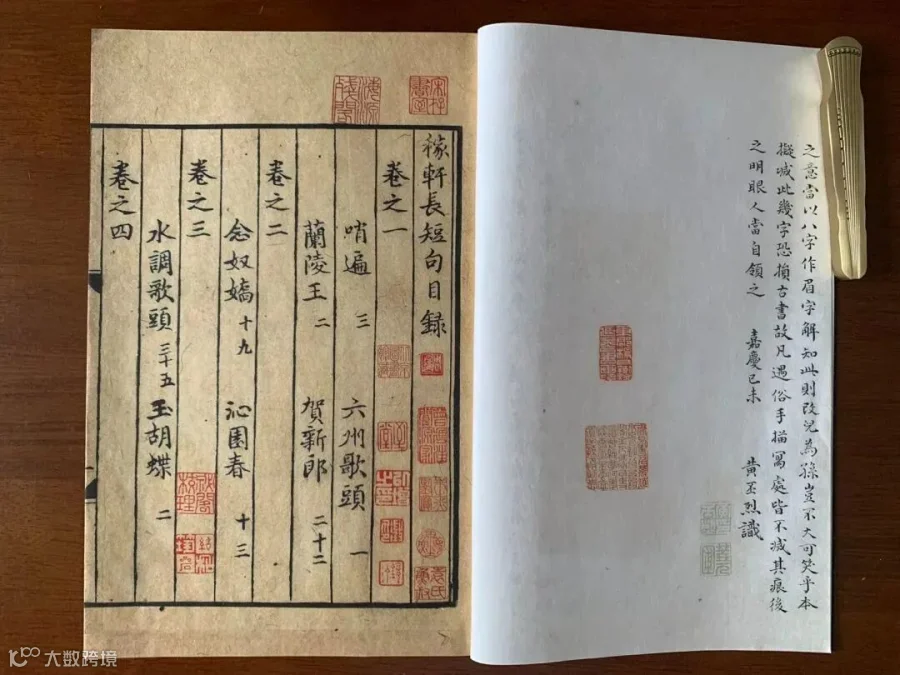 之意當以八字作眉字解知此則改兒為孫豈不大可笑乎本
擬滅此幾字恐損古書故凡遇俗手描寫處皆不滅其痕後
之明眼人當自領之 嘉慶己未 黃丕烈識
稼軒長短句目錄
卷之一
哨遍 三 六州歌頭 一
蘭陵王 二 賀新郎 二十二
卷之二
念奴嬌 十九 沁園春 十三
卷之三
水調歌頭 三十五 玉胡蝶 二
卷之四
大数跨境